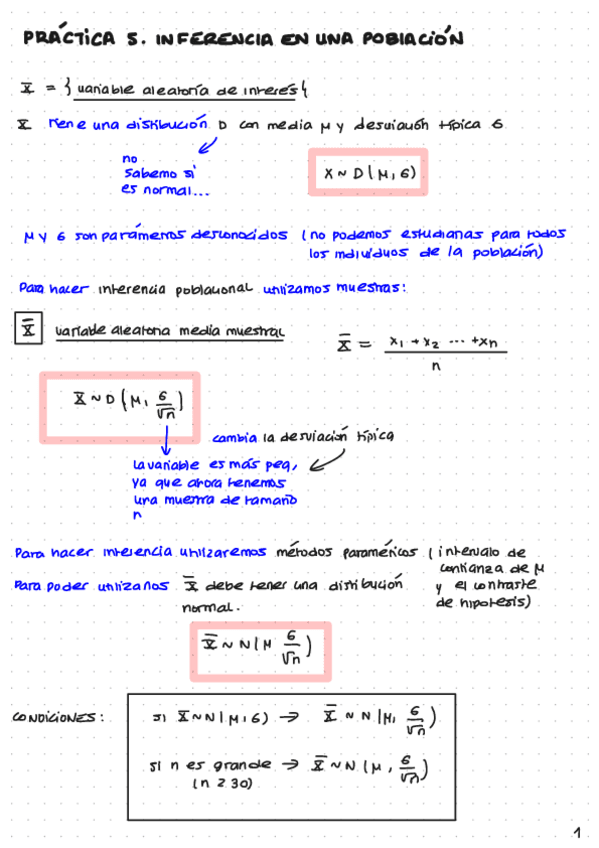 PRÁCTICA 5. INFERENCIA EN UNA POBLACIÓN
X = { variable aleatoria de interés {
X tiene una distribución D con media μ y desviación típica σ
no
sabemo si
es normal...
X ~ D ( μ, σ )
μ y σ son parámetros desconocidos ( no podemos estudiarlas para todos
los individuos de la población)
Para hacer inferencia poblacional utilizamos muestras:
X̄ variable aleatoria media muestral
X̄ = (x₁ + x₂ ... + xn) / n
X̄ ~ D ( μ, σ/√n )
cambia la desviación típica
la variable es más peq,
ya que ahora tenemos
una muestra de tamaño
n
Para hacer inferencia utilizaremos métodos paramétricos ( intervalo de
confianza de μ
Para poder utilizarlos X̄ debe tener una distribución y el contraste
normal. de hipotesis)
X̄ ~ N ( μ σ/√n )
CONDICIONES:
si X ~ N ( μ, σ ) → X̄ ~ N ( μ, σ/√n )
si n es grande → X̄ ~ N ( μ, σ/√n )
( n ≥ 30)
1